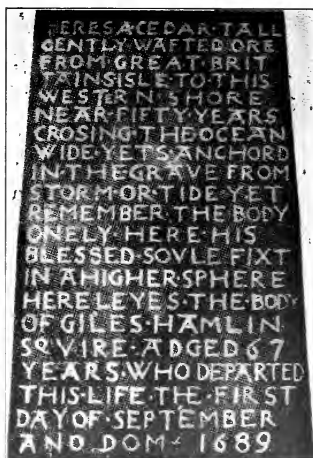 HERES·A·CEDAR·TALL
GENTLY·WAFTED·ORE
FROM·GREAT·BRIT
TAINS·ISLE·TO·THIS
WESTERN·SHORE
NEAR·FIFTY·YEARS
CROSING·THE·OCEAN
WIDE·YETS·ANCHORD
IN·THE·GRAVE·FROM
STORM·OR·TIDE·YET
REMEMBER·THE·BODY
ONELY·HERE·HIS
BLESSED·SOVLE·FIXT
IN A HIGHER·SPHERE
HERE LEYES·THE·BODY
OF GILES·HAMLIN
SQVIRE·ADGED 67
YEARS·WHO DEPARTED
THIS·LIFE·THE·FIRST
DAY OF·SEPTEMBER
AND DOM· 1689